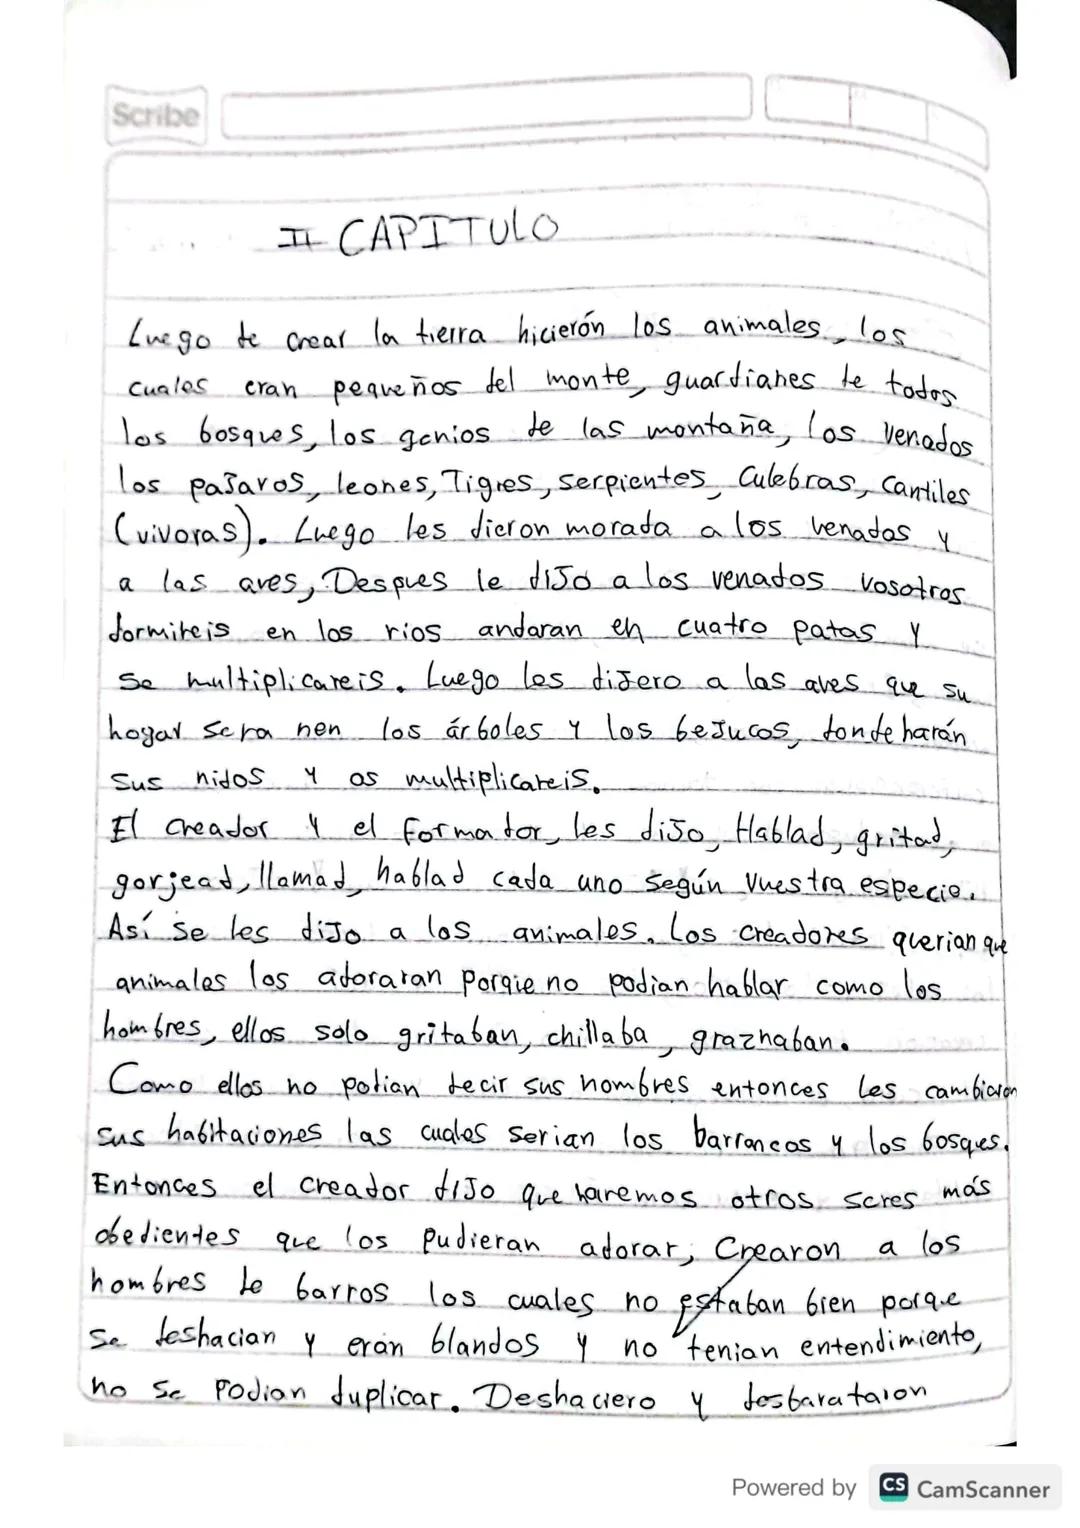 Scribe
II CAPITULO
Luego de crear la tierra hicierón los animales, los
cuales eran pequeños del monte, guardianes de todos
los bosques, los genios de las montaña, los venados
los paJaros, leones, Tigres, serpientes, Culebras, cantiles
(vivoras). Luego les dieron morada a los venados y
a las aves, Despues le diJo a los venados vosotros
dormireis en los rios andaran en cuatro patas y
se multiplicareis. Luego les diJero a las aves que su
hogar sera nen los árboles y los beJucos, donde harán
sus nidos y os multiplicareis.
El creador y el formador, les diJo, Hablad, gritad,
gorjead, llamad, hablad cada uno según vuestra especie.
Así se les diJo a los animales. Los creadores querian que
animales los adoraran porqie no podian hablar como los
hombres, ellos solo gritaban, chillaba, graznaban.
Como ellos no podian decir sus nombres entonces les cambiaron
sus habitaciones las cuales serian los barrancos y los bosques.
Entonces el creador diJo que haremos otros seres más
obedientes que los pudieran adorar, Crearon a los
hombres de barros los cuales no estaban bien porque
se deshacian y erán blandos y no tenian entendimiento,
no se Podian duplicar. Deshaciero y desbarataron
Powered by CS CamScanner